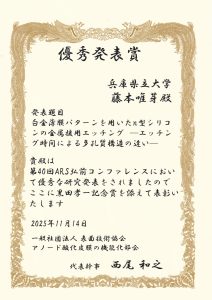 優秀発表賞
兵庫県立大学
藤本唯芽殿
発表題目
白金薄膜パターンを用いたn型シリコ
ンの金属援用エッチング ―エッチ
ング時間による多孔質構造の違い―
貴殿は
第40回ARS弘前コンファレンスにおい
て優秀な研究発表をされましたので
ここに黒田孝一記念賞を添えて表彰い
たします
2025年11月14日
一般社団法人 表面技術協会
アノード酸化皮膜の機能化部会
代表幹事 西尾 和之